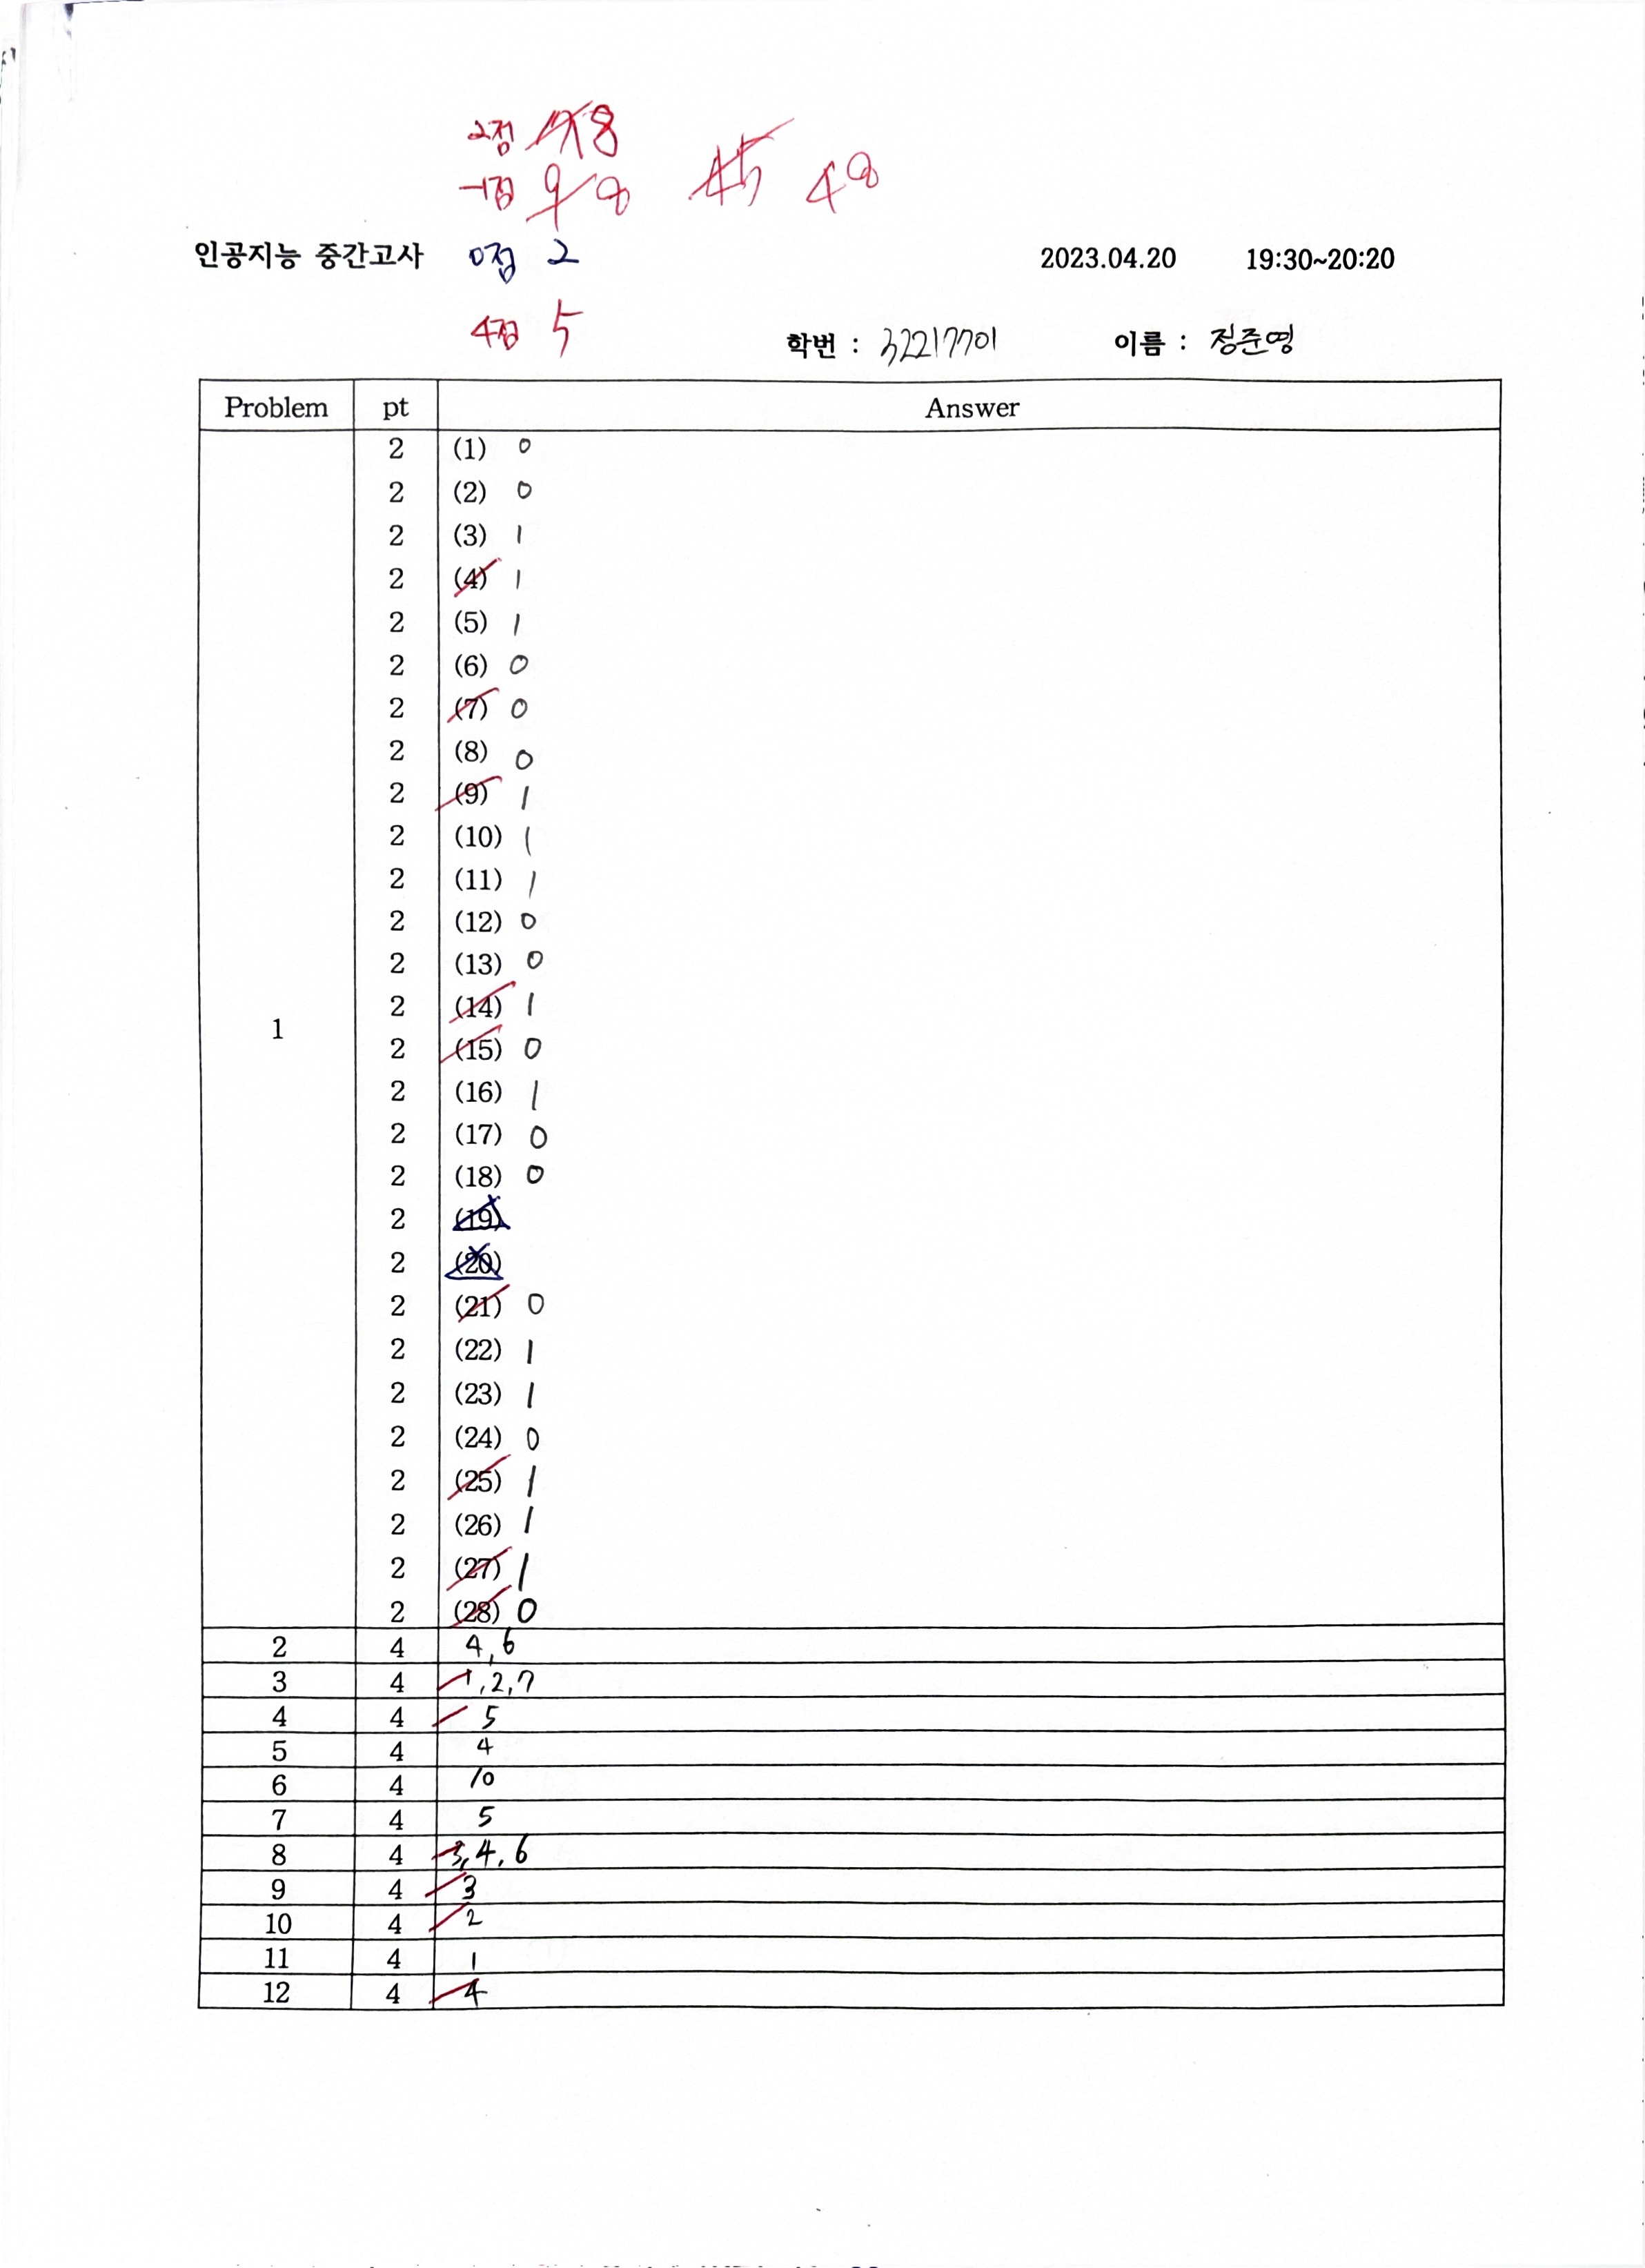 2점 17 18
-1점 9 8 45 48
인공지능 중간고사 0점 2 2023.04.20 19:30~20:20
4점 5
학번 : 32217701 이름 : 정준영
Problem pt Answer
1
2 (1) 0
2 (2) 0
2 (3) 1
2 (4) 1
2 (5) 1
2 (6) 0
2 (7) 0
2 (8) 0
2 (9) 1
2 (10) 1
2 (11) 1
2 (12) 0
2 (13) 0
2 (14) 1
2 (15) 0
2 (16) 1
2 (17) 0
2 (18) 0
2 (19)
2 (20)
2 (21) 0
2 (22) 1
2 (23) 1
2 (24) 0
2 (25) 1
2 (26) 1
2 (27) 1
2 (28) 0
2 4 4,6
3 4 1,2,7
4 4 5
5 4 4
6 4 10
7 4 5
8 4 3,4,6
9 4 3
10 4 2
11 4 1
12 4 4